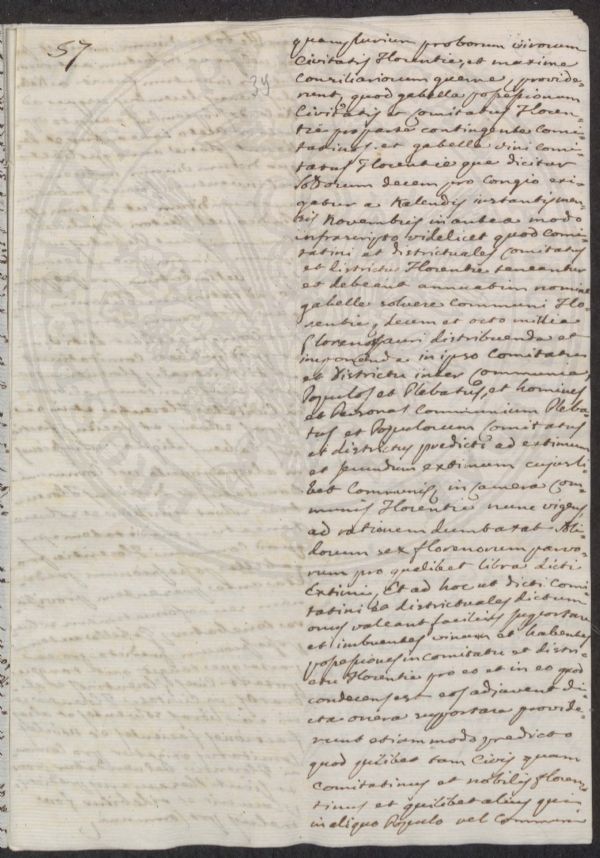 57
39
quamplurium proborum virorum
Civitatis Florentie, et maxime
Consiliariorum quam, provide-
runt, quod gabella posessionum
Civitatis et Comitatus Floren-
tie pro parte contingente Comi-
tatinos et gabella vini Comi-
tatus Florentie que dicitur
Soldorum decem pro Congio exi-
gatur a Kalendis instantis men-
sis Novembris in antea modo
infrascripto videlicet quod Comi-
tatini et districtuales Comitatus
et districtus Florentie teneantur
et debeant annuatim nomine
gabelle solvere Communi Flo-
rentie, decem et octo millia
Florenos auri distribuenda et
imponenda in ipso Comitatu
et Districtu inter Communia,
Populos et Plebatus, et homines
et Personas Communium Pleba-
tus et Populorum Comitatus
et districtus predicti ad extimum
et secundum extimum cujusli-
bet Communis, in Camera Com-
munis Florentie nunc vigens
ad rationem dumtaxat Sol-
dorum sex florenorum parvo-
rum pro qualibet libra dicti
Extimi, Et ad hoc ut dicti Comi-
tatini et districtuales dictum
onus valeant facilius supportare
et imbuentes vinum et habentes
posessiones in Comitatu et distri-
ctu Florentie pro eo et in eo quod
condecens est eos adjuvent di-
cta onera supportare provide-
runt etiam modo predicto
quod quilibet tam Civis quam
Comitatinus et nobilis floren-
tinus et quilibet alius qui
in aliquo Populo vel Communi